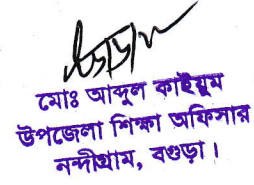 মোঃ আব্দুল কাইয়ুম
উপজেলা শিক্ষা অফিসার
নন্দীগ্রাম, বগুড়া।